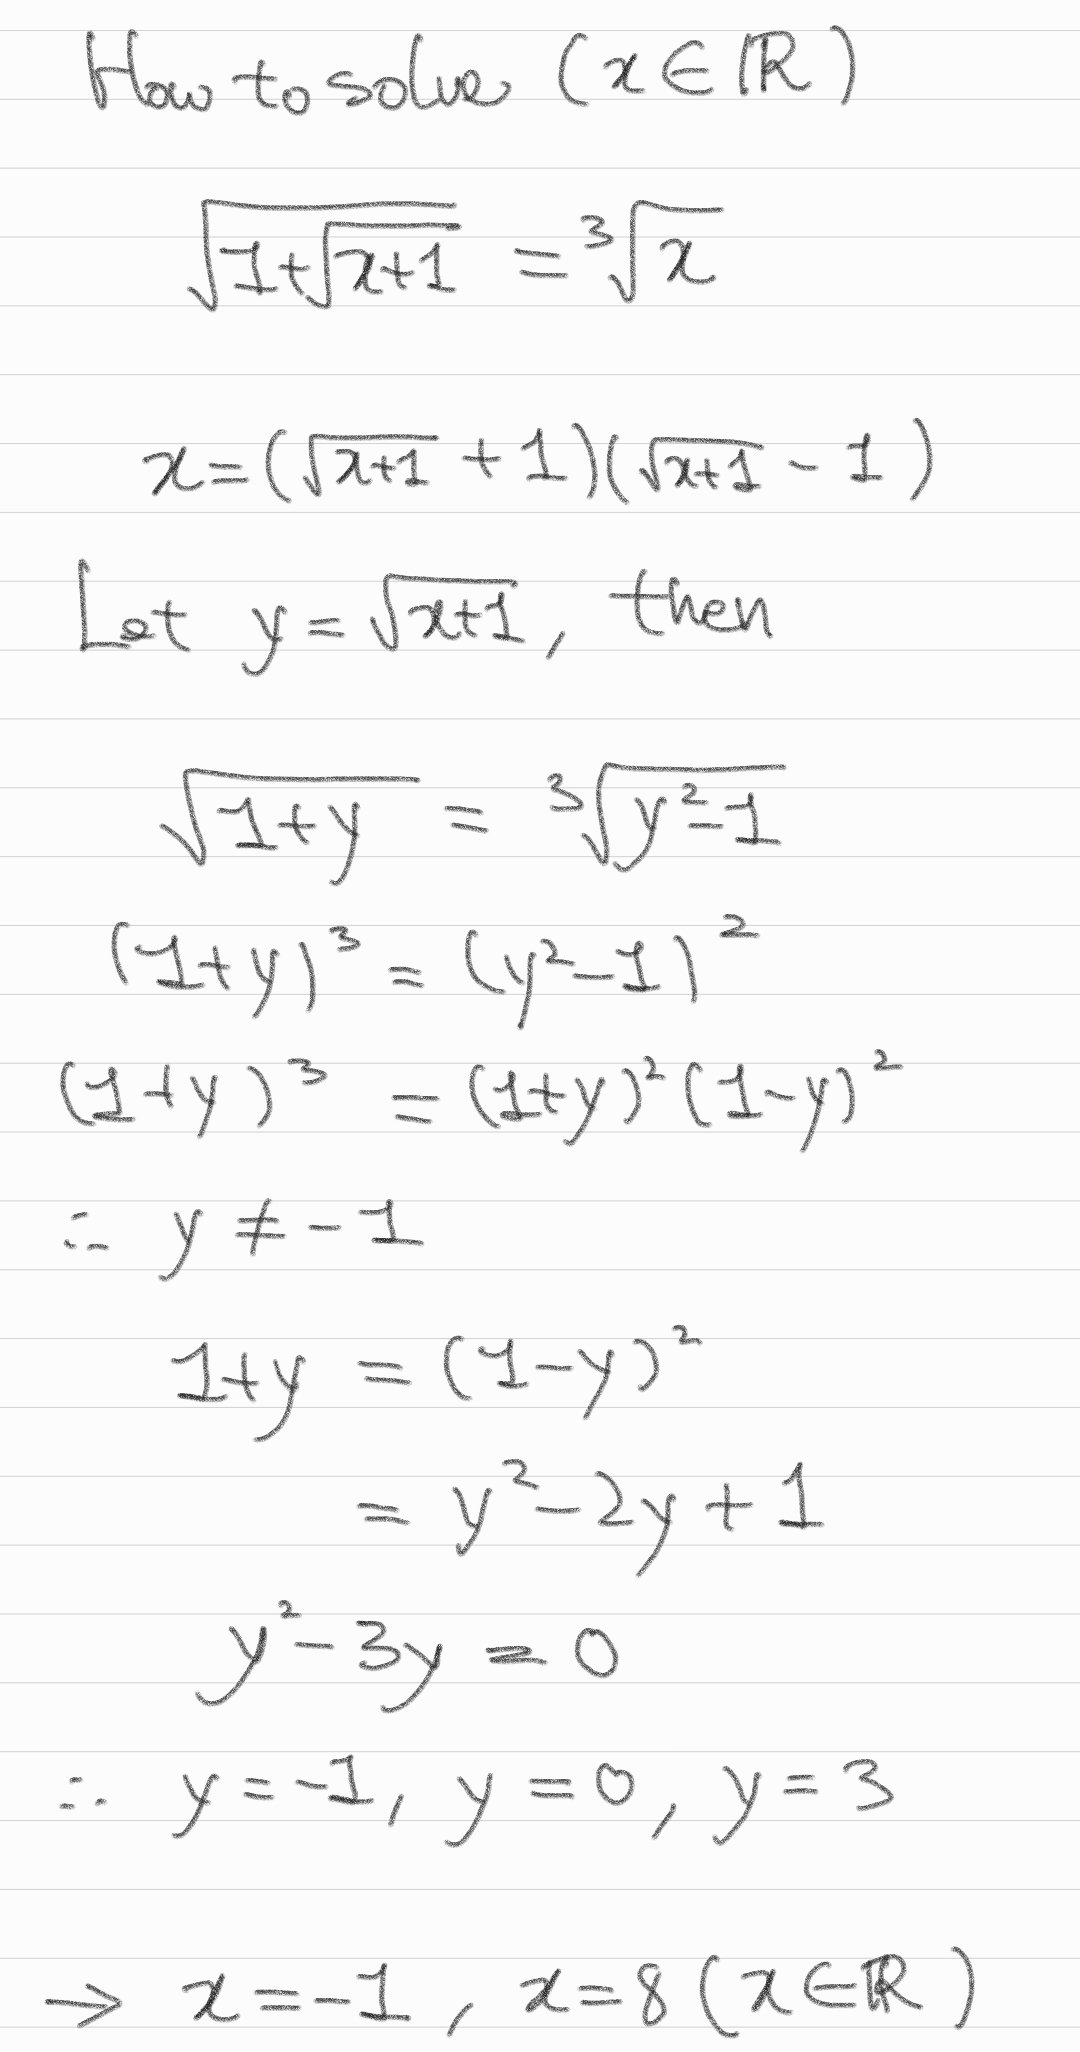 How to solve (x∈ℝ)
√(1+√(x+1)) = ³√x
x=(√(x+1) + 1)(√(x+1) - 1)
Let y=√(x+1), then
√(1+y) = ³√(y²-1)
(1+y)³ = (y²-1)²
(1+y)³ = (1+y)²(1-y)²
∴ y ≠ -1
1+y = (1-y)²
= y²-2y+1
y²-3y=0
∴ y=-1, y=0, y=3
→ x=-1, x=8 (x∈ℝ)